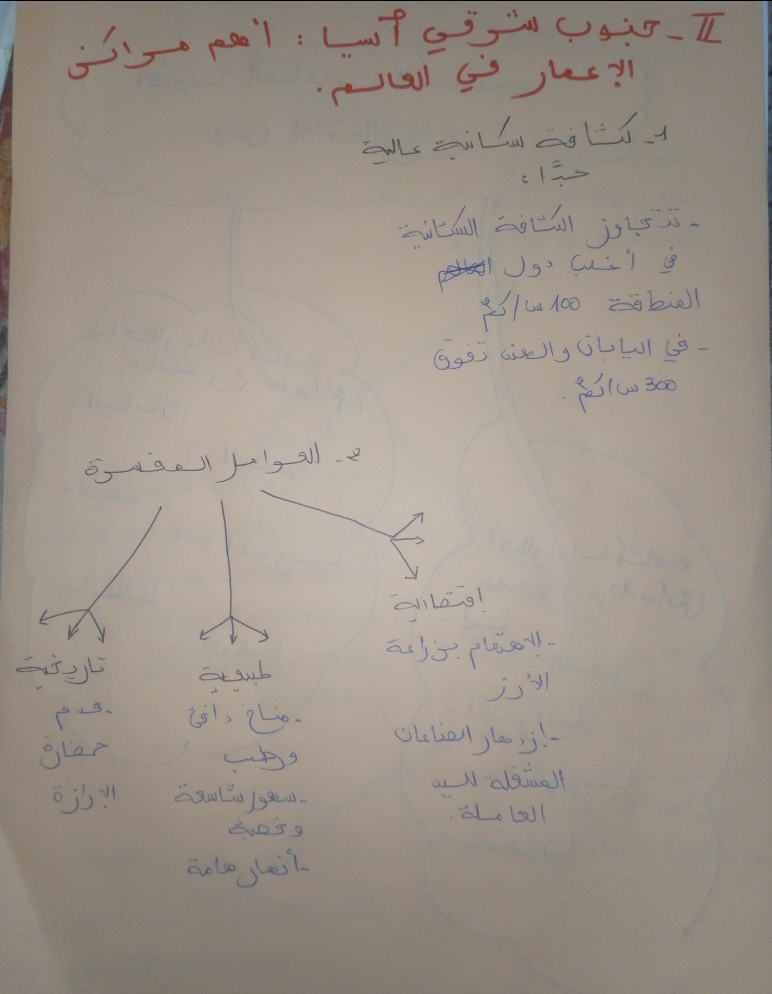 II - جنوب شرقي آسيا : أهم مراكز
الإعمار في العالم.
1- كثافة سكانية عالية
جدًّا :
- تتجاوز الكثافة السكانية
في أغلب دول
المنطقة 100 س/كم²
- في اليابان والصين تفوق
300 س/كم².
2- العوامل المفسرة
اقتصادية
- الاهتمام بزراعة
الأرز
- ازدهار الصناعات
المشغلة لليد
العاملة.
طبيعية
- مناخ دافئ
ورطب
- سهول شاسعة
وخصبة
- أنهار هامة
تاريخية
- قدم
حضارة
الأرزة